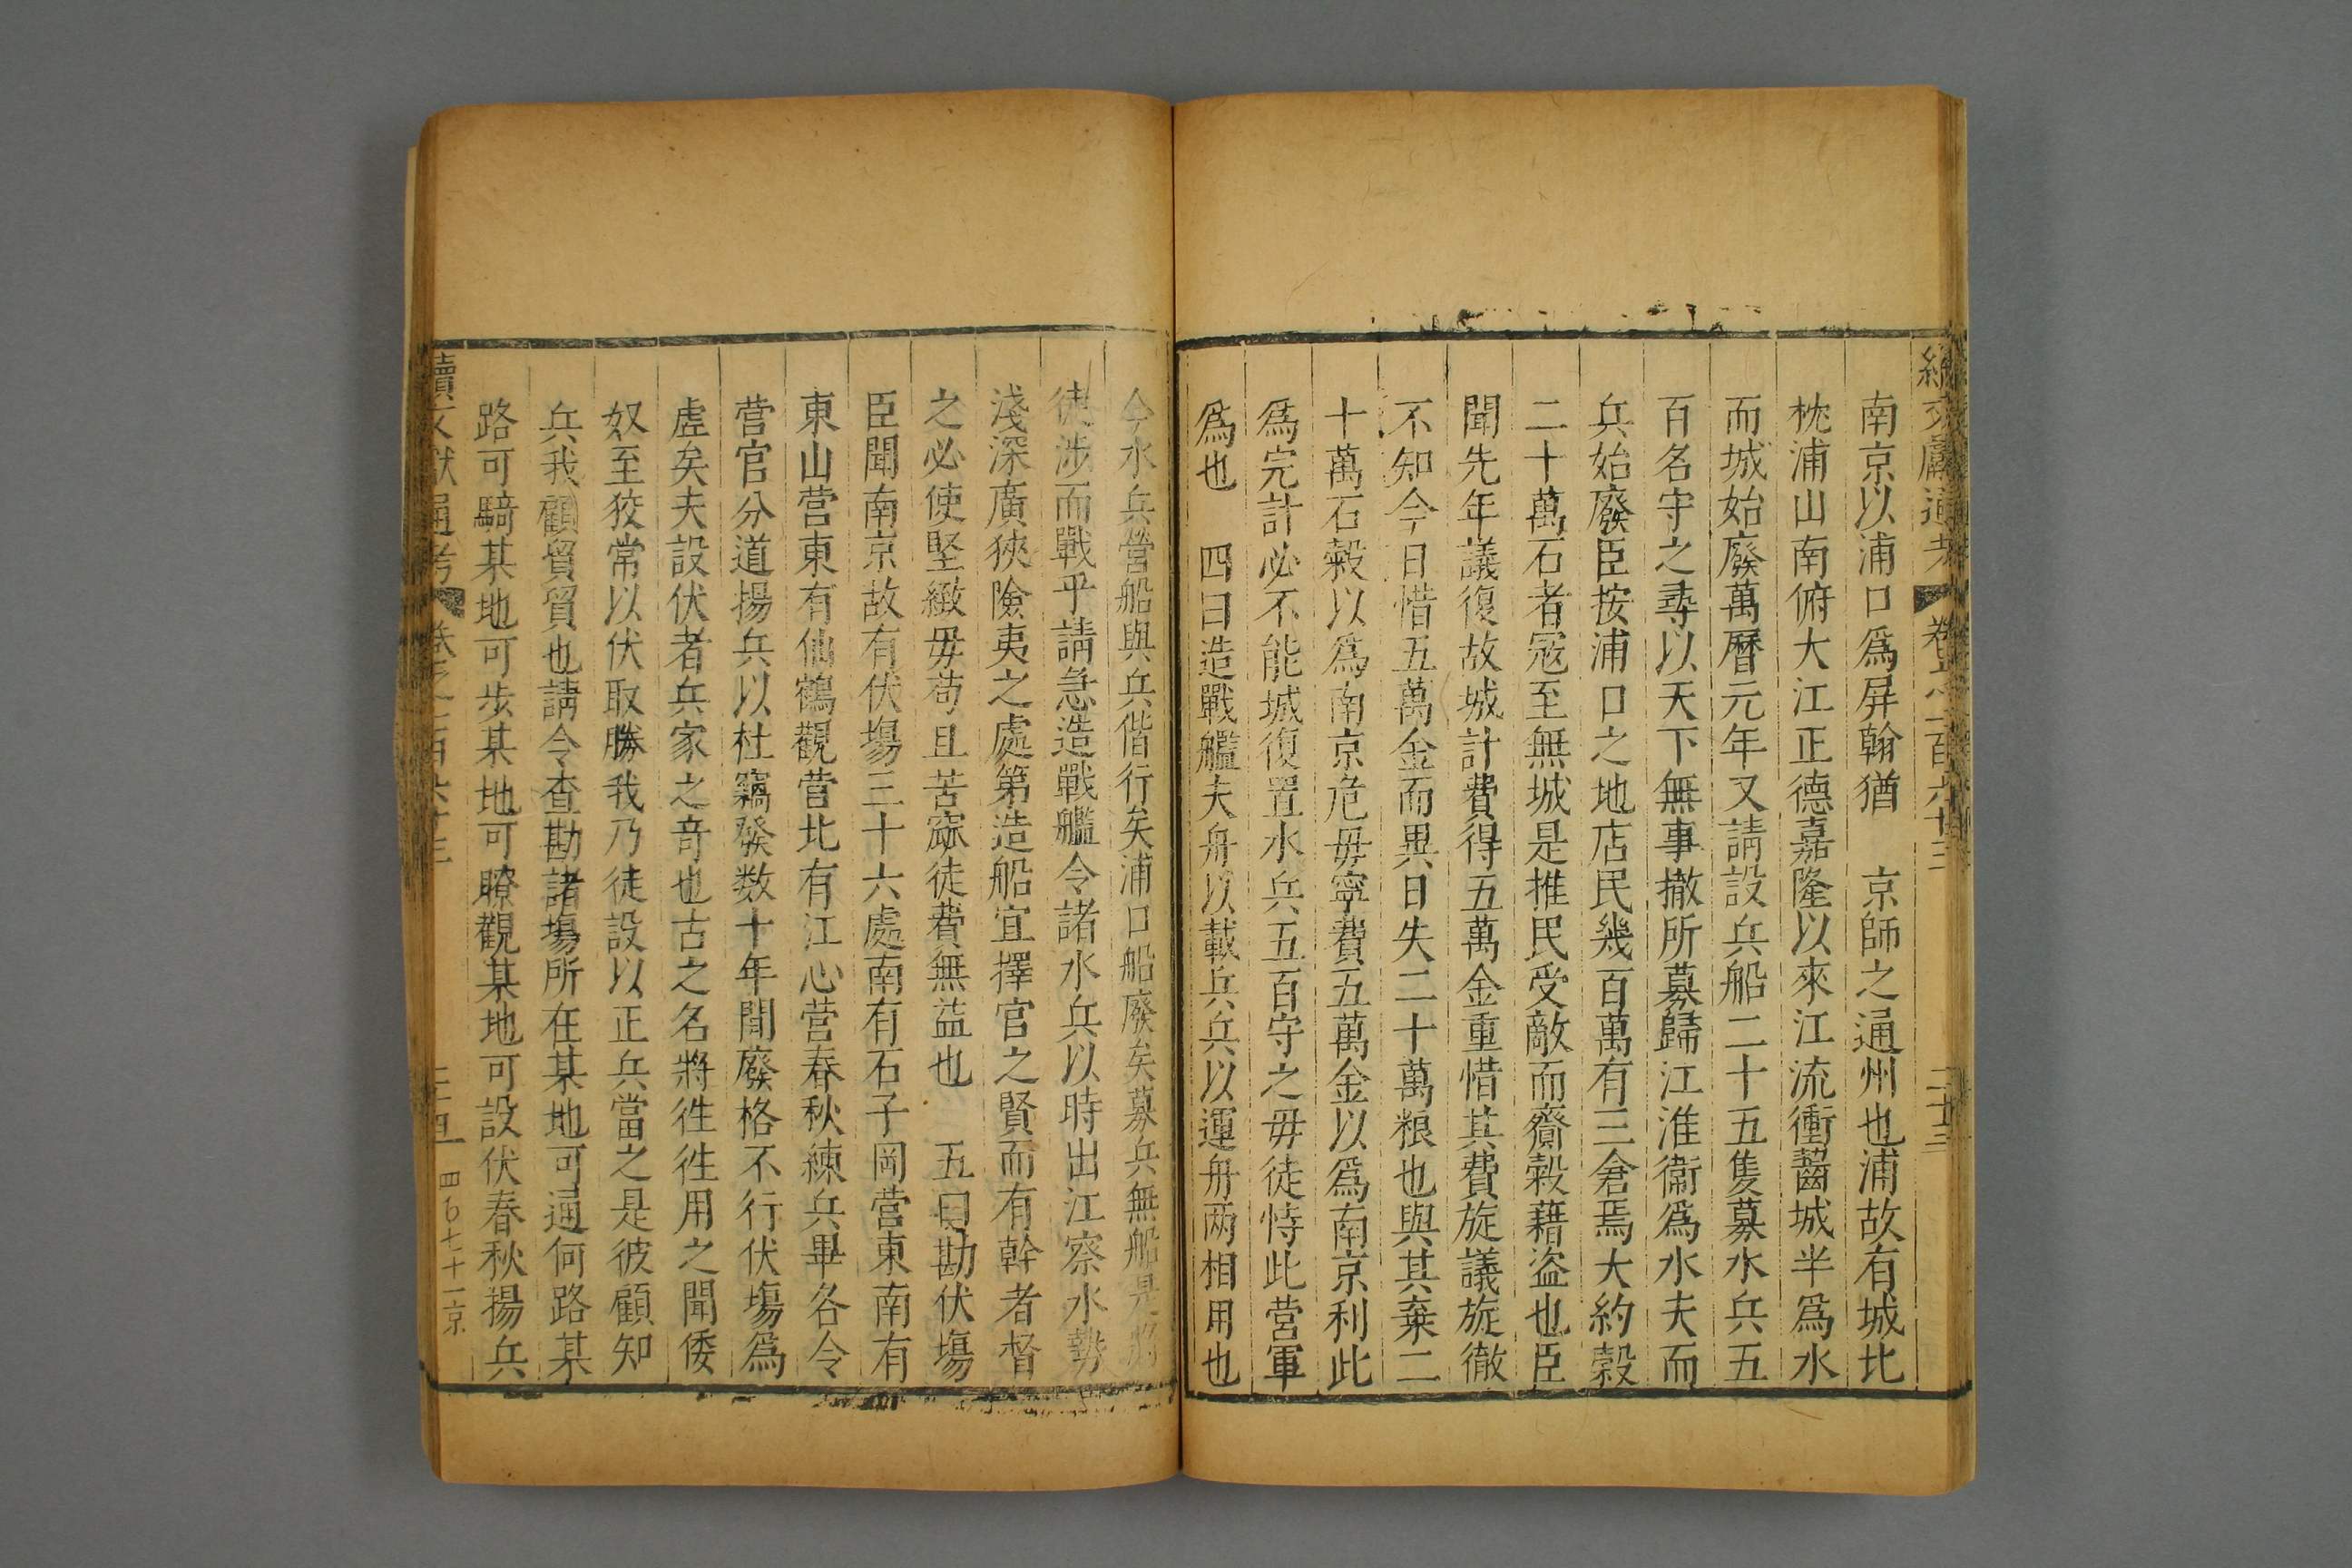 續文獻通考 卷之一百六十三 二十三
南京以浦口爲屏翰猶 京師之通州也浦故有城北
枕浦山南俯大江正德嘉隆以來江流衝齧城半爲水
而城始廢萬曆元年又請設兵船二十五隻募水兵五
百名守之尋以天下無事撤所募歸江淮衞爲水夫而
兵始廢臣按浦口之地店民幾百萬有三倉焉大約穀
二十萬石者冦至無城是推民受敵而齎穀藉盜也臣
聞先年議復故城計費得五萬金重惜其費旋議旋徹
不知今日惜五萬金而異日失二十萬粮也與其棄二
十萬石穀以爲南京危毋寧費五萬金以爲南京利此
爲完計必不能城復置水兵五百守之毋徒恃此营軍
爲也 四曰造戰艦夫舟以載兵兵以運舟两相用也
今水兵營船與兵偕行矣浦口船廢矣募兵無船是將
徒涉而戰乎請急造戰艦令諸水兵以時出江察水勢
淺深廣狹險夷之處第造船宜擇官之賢而有幹者督
之必使堅緻毋苟且苦窳徒費無益也 五曰勘伏塲
臣聞南京故有伏塲三十六處南有石子岡营東南有
東山营東有仙鶴觀营北有江心营春秋練兵畢各令
营官分道揚兵以杜竊發数十年間廢格不行伏塲爲
虛矣夫設伏者兵家之竒也古之名將徃徃用之聞倭
奴至狡常以伏取勝我乃徒設以正兵當之是彼顧知
兵我顧貿貿也請令查勘諸塲所在某地可通何路某
路可騎某地可步某地可瞭觀某地可設伏春秋揚兵
續文獻通考 卷之一百六十三 二十四